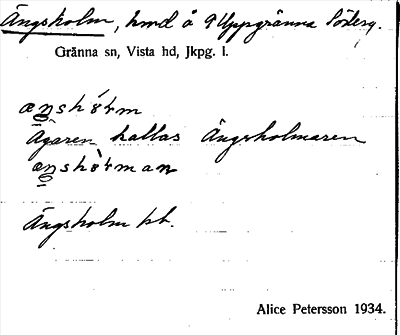 Ängsholm, hmd å 9 Uppgränna Söderg.
Gränna sn, Vista hd, Jkpg. l.
Ägaren kallas Ängsholmaren
Ängsholm kb.
Alice Petersson 1934.